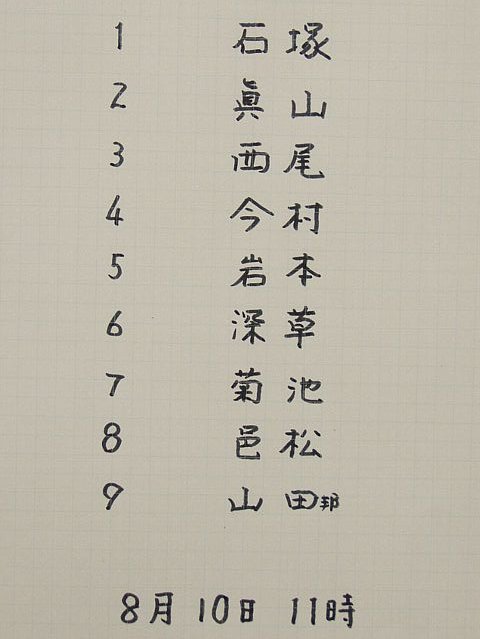 1 石塚
2 眞山
3 西尾
4 今村
5 岩本
6 深草
7 菊池
8 邑松
9 山田邦
8月10日 11時